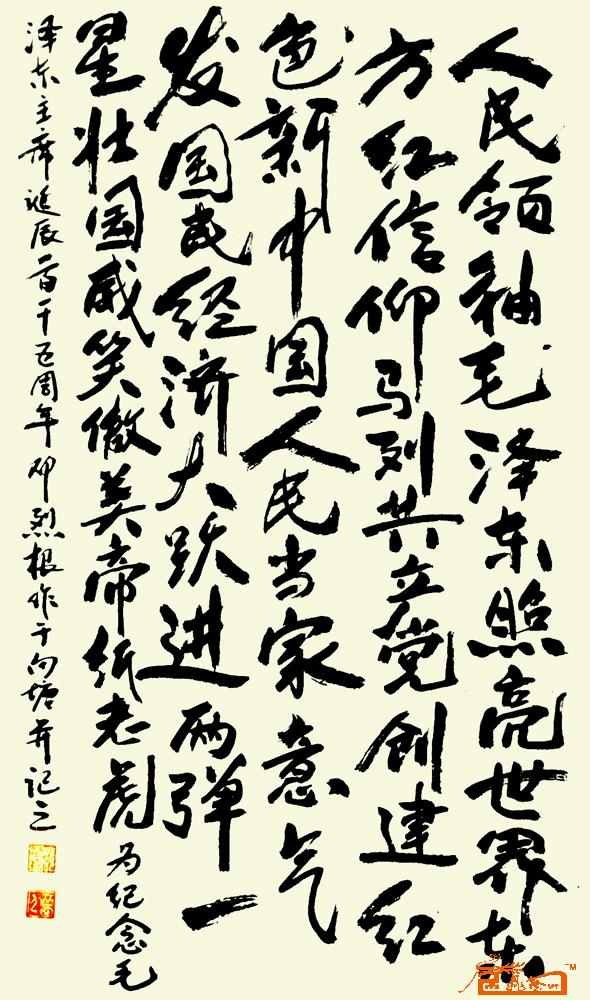 人民领袖毛泽东照亮世界东
方红信仰马列共立党创建红
色新中国人民当家意气
发国民经济大跃进两弹一
星壮国威笑傲美帝纸老虎为纪念毛
泽东主席诞辰一百二十五周年邓烈根作于向塘并记之